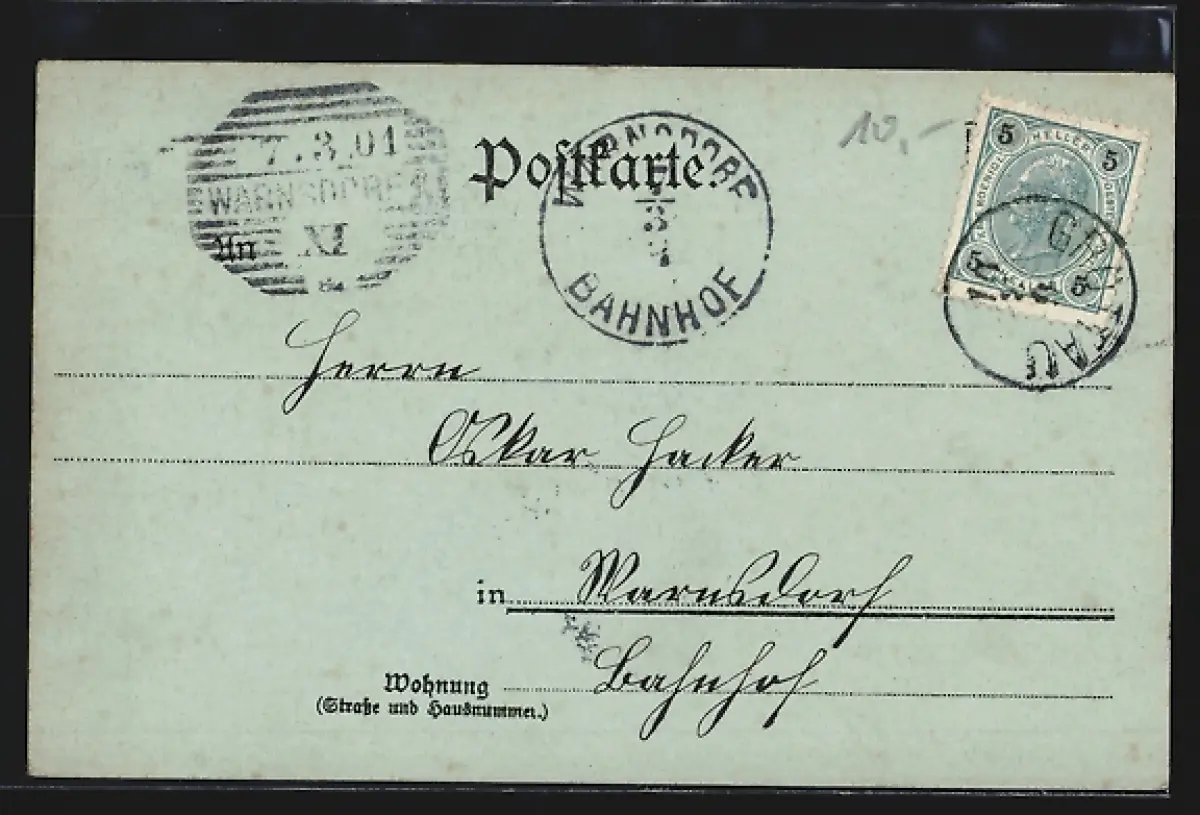 7.3.01
WARNSDORF
XI
Postkarte.
WARNSDORF
3
BAHNHOF
10,-
5 HELLER 5
5 5
GROTTAU
An
Herrn
Oskar Hacker
in Warnsdorf
Bahnhof
Wohnung
(Straße und Hausnummer.)